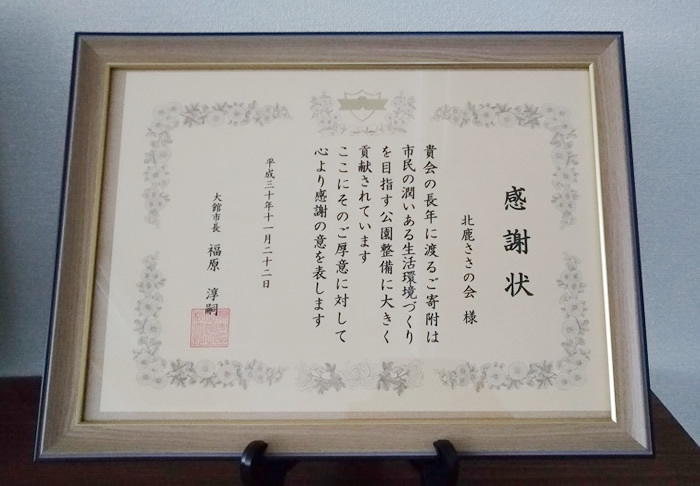 感謝状
北鹿ささの会 様
貴会の長年に渡るご寄附は
市民の潤いある生活環境づくり
を目指す公園整備に大きく
貢献されています
ここにそのご厚意に対して
心より感謝の意を表します
平成三十年十一月二十二日
大館市長 福原 淳嗣